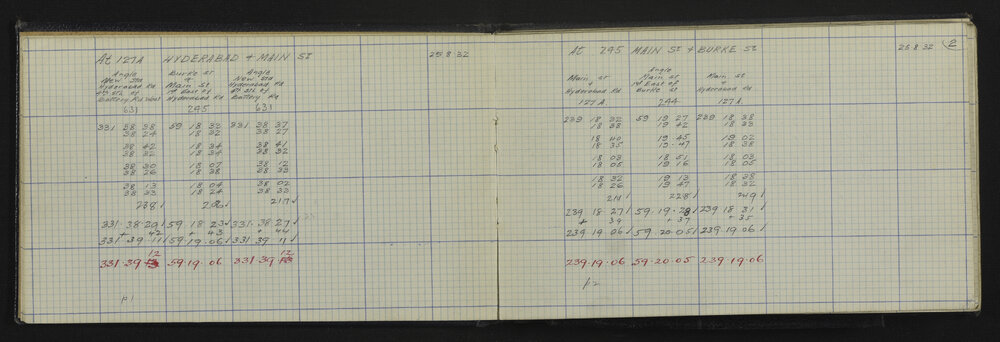 At 127A HYDERABAD + MAIN St 25 8 32
Angle Burke St Angle
New Std + New Std
Hyderabad Rd Main St Hyderabad Rd
4th Std of 1st East of 4th Std of
Battery Rd West Hyderabad Rd Battery Rd
631 295 631
331 38 38 59 18 33 331 38 37
38 24 18 32 38 27
38 42 18 34 38 41
38 32 18 34 38 32
38 30 18 07 38 12
38 26 18 28 38 23
38 13 18 04 38 02
38 23 18 24 38 23
228✓ 206✓ 217✓
331·38·29✓ 59 18 23✓ 331·38·27✓
+ 42 + 43 + 44
331 39 11✓ 59·19·06✓ 331 39 11✓
12 12
331·39 59·19·06 331 39
p1
At 295 MAIN St + BURKE St 25 8 32 2
Angle
Main St Main St Main St
+ 1st East of +
Hyderabad Rd Burke St Hyderabad Rd
127A 294 127A
239 18 32 59 19 27 239 18 38
18 38 19 42 18 33
18 40 19 45 19 02
18 35 19·47 18 38
18 03 18 51 18 03
18 05 19 16 18 05
18 32 19 13 18 28
18 26 19 47 18 32
211✓ 228✓ 249✓
239 18 27✓ 59·19·28✓ 239 18 31✓
+ 39 + 37 + 35
239·19 06✓ 59·20·05✓ 239·19 06✓
239·19·06 59·20·05 239·19·06
p2